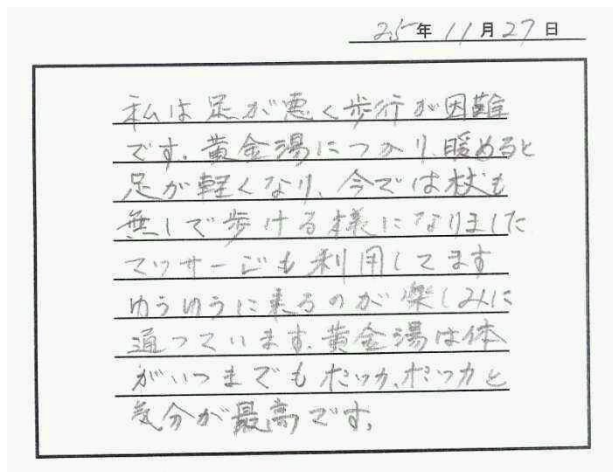 25年11月27日
私は足が悪く歩行が困難
です。黄金湯につかり、暖めると
足が軽くなり、今では杖も
無しで歩ける様になりました
マッサージも利用してます
ゆうゆうに来るのが楽しみに
通っています。黄金湯は体
がいつまでもポッカ、ポッカと
気分が最高です。